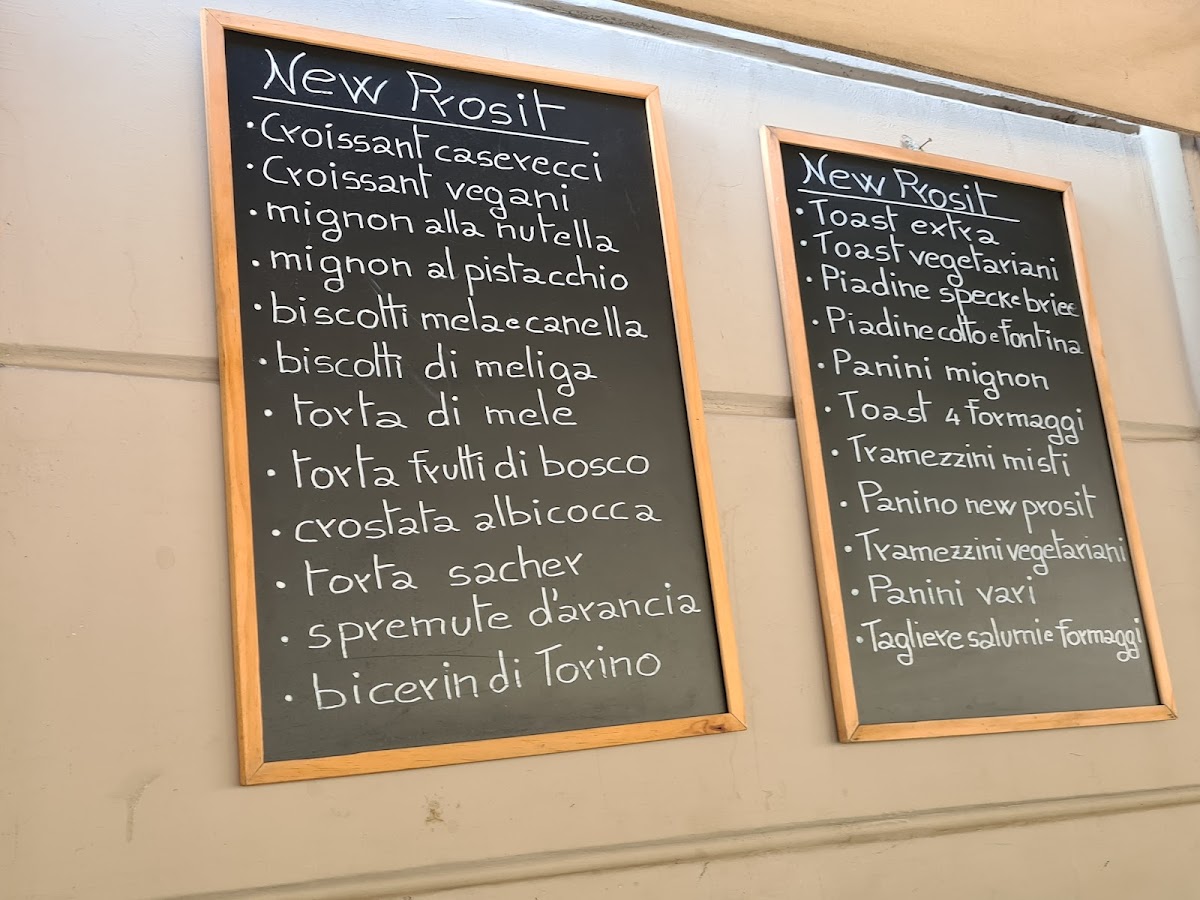 New Prosit
• Croissant caserecci
• Croissant vegani
• mignon alla nutella
• mignon al pistacchio
• biscotti mela e canella
• biscotti di meliga
• torta di mele
• torta frutti di bosco
• crostata albicocca
• torta sacher
• spremute d'arancia
• bicerin di Torino
New Prosit
• Toast extra
• Toast vegetariani
• Piadine speck e briee
• Piadine cotto e fontina
• Panini mignon
• Toast 4 formaggi
• Tramezzini misti
• Panino new prosit
• Tramezzini vegetariani
• Panini vari
• Tagliere salumi e formaggi